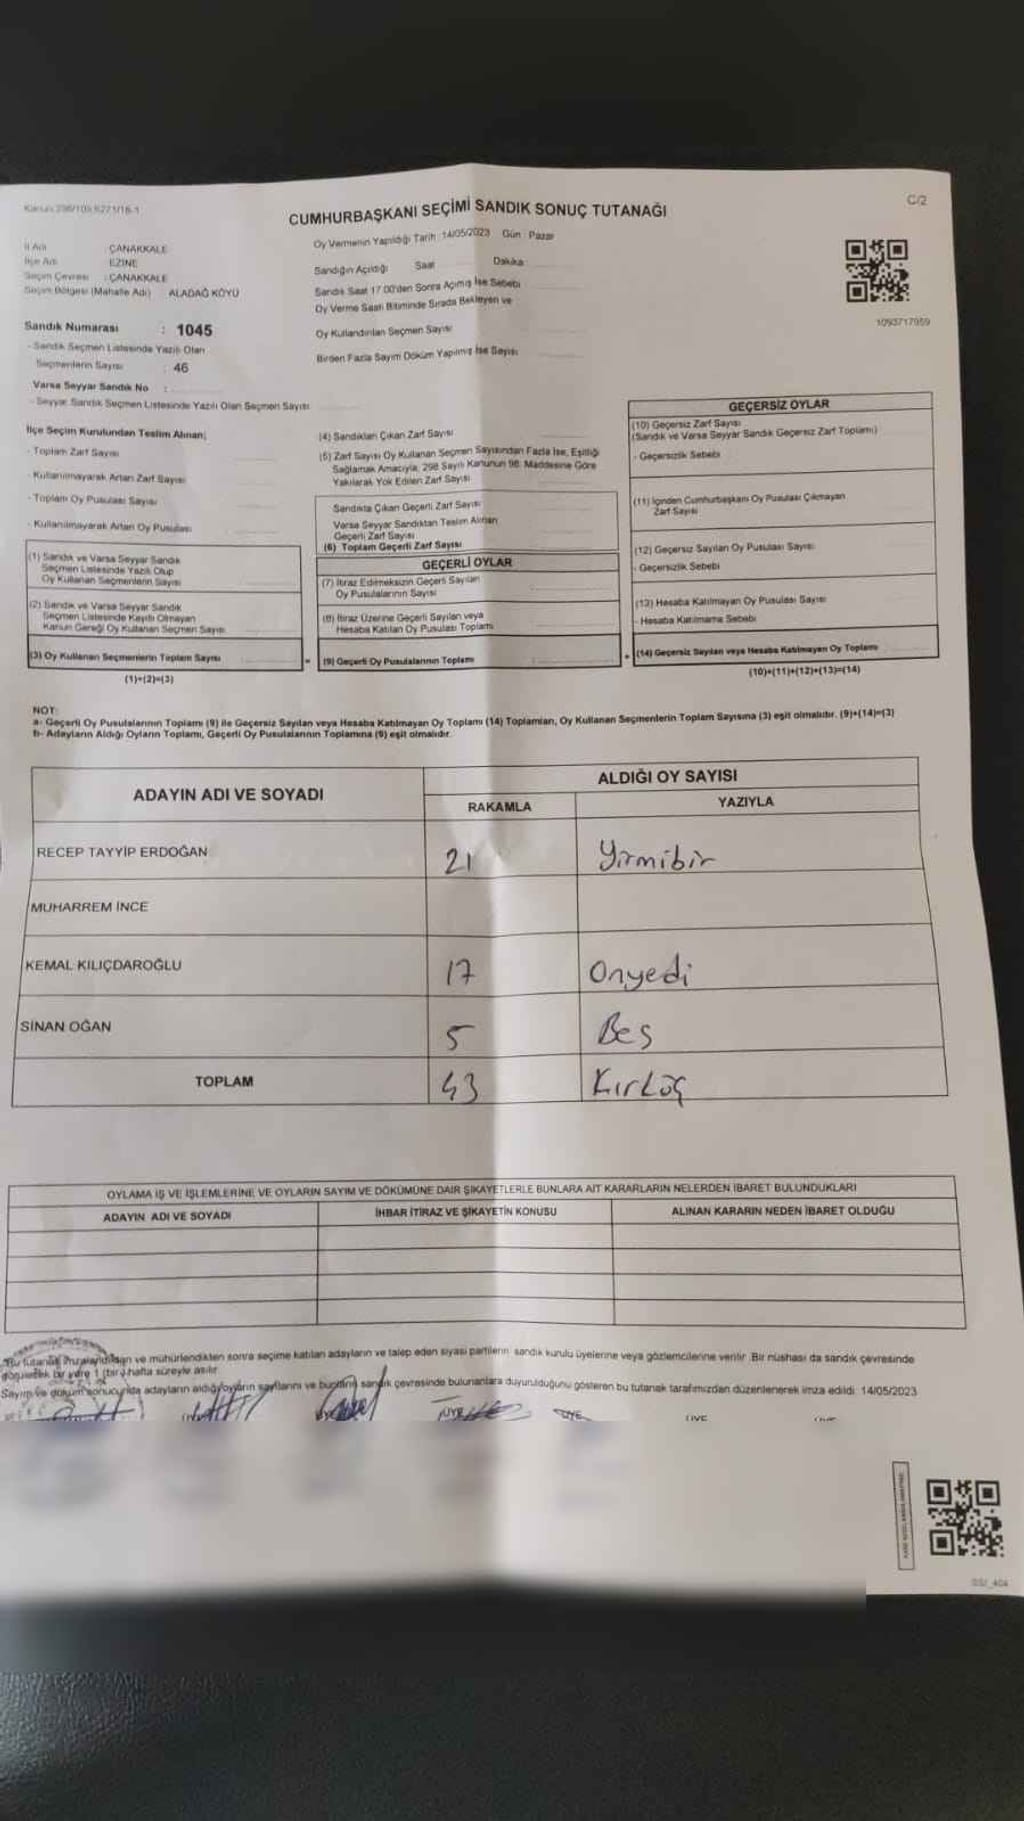 C/2
CUMHURBAŞKANI SEÇİMİ SANDIK SONUÇ TUTANAĞI
Oy Vermenin Yapıldığı Tarih :14/05/2023 Gün : Pazar
İl Adı : ÇANAKKALE
İlçe Adı : EZİNE
Seçim Çevresi : ÇANAKKALE
Seçim Bölgesi (Mahalle Adı) : ALADAĞ KÖYÜ
Sandık Numarası : 1045
- Sandık Seçmen Listesinde Yazılı Olan
Seçmenlerin Sayısı : 46
Varsa Seyyar Sandık No :
- Seyyar Sandık Seçmen Listesinde Yazılı Olan Seçmen Sayısı
Sandığın Açıldığı Saat Dakika
Sandık Saat 17.00'den Sonra Açılmış İse Sebebi
Oy Verme Saati Bitiminde Sırada Bekleyen ve
Oy Kullandırılan Seçmen Sayısı
Birden Fazla Sayım Döküm Yapılmış İse Sayısı
1093717959
İlçe Seçim Kurulundan Teslim Alınan;
- Toplam Zarf Sayısı
- Kullanılmayarak Artan Zarf Sayısı
- Toplam Oy Pusulası Sayısı
- Kullanılmayarak Artan Oy Pusulası
(1) Sandık ve Varsa Seyyar Sandık
Seçmen Listesinde Yazılı Olup
Oy Kullanan Seçmenlerin Sayısı
(2) Sandık ve Varsa Seyyar Sandık
Seçmen Listesinde Kayıtlı Olmayan
Kanun Gereği Oy Kullanan Seçmen Sayısı
(3) Oy Kullanan Seçmenlerin Toplam Sayısı
(1)+(2)=(3)
(4) Sandıktan Çıkan Zarf Sayısı
(5) Zarf Sayısı Oy Kullanan Seçmen Sayısından Fazla İse, Eşitliği
Sağlamak Amacıyla, 298 Sayılı Kanunun 98. Maddesine Göre
Yakılarak Yok Edilen Zarf Sayısı
Sandıkta Çıkan Geçerli Zarf Sayısı
Varsa Seyyar Sandıktan Teslim Alınan
Geçerli Zarf Sayısı
(6) Toplam Geçerli Zarf Sayısı
GEÇERLİ OYLAR
(7) İtiraz Edilmeksizin Geçerli Sayılan
Oy Pusulalarının Sayısı
(8) İtiraz Üzerine Geçerli Sayılan veya
Hesaba Katılan Oy Pusulası Toplamı
= (9) Geçerli Oy Pusulalarının Toplamı
GEÇERSİZ OYLAR
(10) Geçersiz Zarf Sayısı
(Sandık ve Varsa Seyyar Sandık Geçersiz Zarf Toplamı)
- Geçersizlik Sebebi
(11) İçinden Cumhurbaşkanı Oy Pusulası Çıkmayan
Zarf Sayısı
(12) Geçersiz Sayılan Oy Pusulası Sayısı
- Geçersizlik Sebebi
(13) Hesaba Katılmayan Oy Pusulası Sayısı
- Hesaba Katılmama Sebebi
+ (14) Geçersiz Sayılan veya Hesaba Katılmayan Oy Toplamı
(10)+(11)+(12)+(13)=(14)
NOT:
a- Geçerli Oy Pusulalarının Toplamı (9) ile Geçersiz Sayılan veya Hesaba Katılmayan Oy Toplamı (14) Toplamları, Oy Kullanan Seçmenlerin Toplam Sayısına (3) eşit olmalıdır. (9)+(14)=(3)
b- Adayların Aldığı Oyların Toplamı, Geçerli Oy Pusulalarının Toplamına (9) eşit olmalıdır.
ADAYIN ADI VE SOYADI
ALDIĞI OY SAYISI
RAKAMLA YAZIYLA
RECEP TAYYİP ERDOĞAN 21 Yirmibir
MUHARREM İNCE
KEMAL KILIÇDAROĞLU 17 Onyedi
SİNAN OĞAN 5 Beş
TOPLAM 43 Kırküç
OYLAMA İŞ VE İŞLEMLERİNE VE OYLARIN SAYIM VE DÖKÜMÜNE DAİR ŞİKAYETLERLE BUNLARA AİT KARARLARIN NELERDEN İBARET BULUNDUKLARI
ADAYIN ADI VE SOYADI İHBAR İTİRAZ VE ŞİKAYETİN KONUSU ALINAN KARARIN NEDEN İBARET OLDUĞU
Bu tutanak imzalandıktan ve mühürlendikten sonra seçime katılan adayların ve talep eden siyasi partilerin sandık kurulu üyelerine veya gözlemcilerine verilir. Bir nüshası da sandık çevresinde
görülebilir bir yere 1 (bir) hafta süreyle asılır.
Sayım ve döküm sonucunda adayların aldığı oyların sayılarını ve bunların sandık çevresinde bulunanlara duyurulduğunu gösteren bu tutanak tarafımızdan düzenlenerek imza edildi. 14/05/2023
ÜYE ÜYE ÜYE